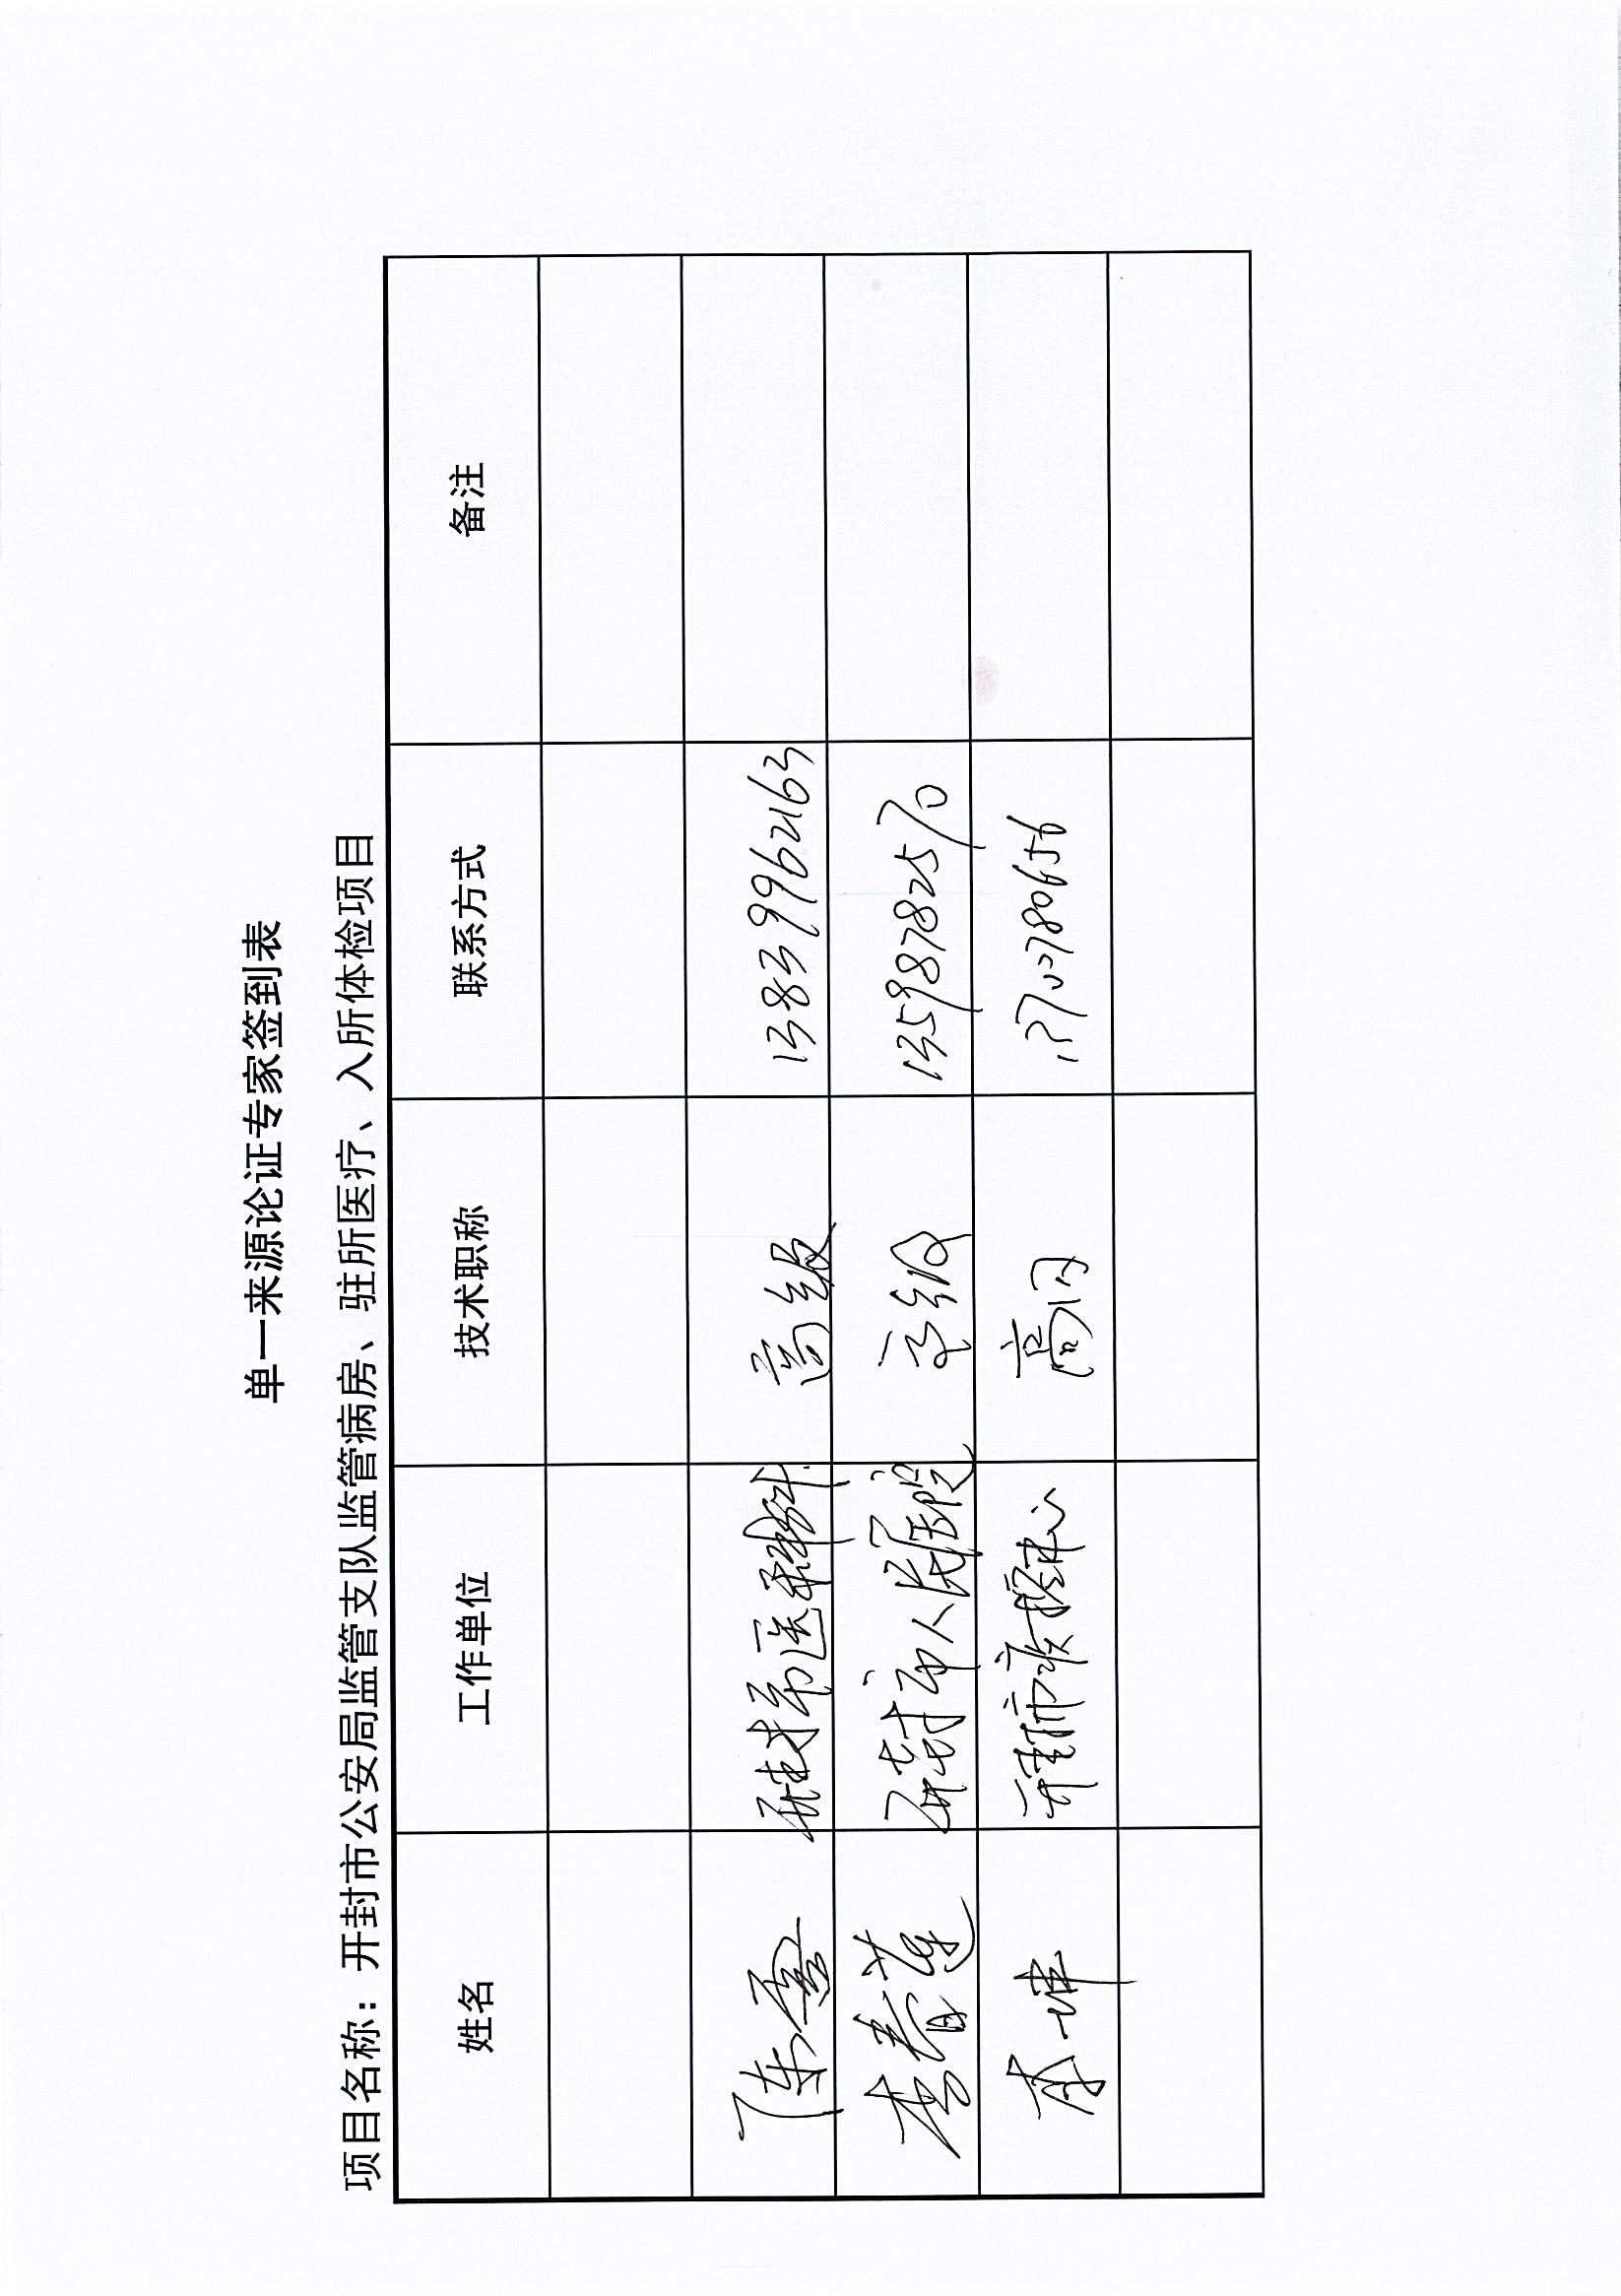 单一来源论证专家签到表
项目名称：开封市公安局监管支队监管病房、驻所医疗、入所体检项目
姓名 工作单位 技术职称 联系方式 备注
陈 高级 13839962163
李春莲 开封市人民医院 高级 13598782570
李坤 开封市疾控中心 高